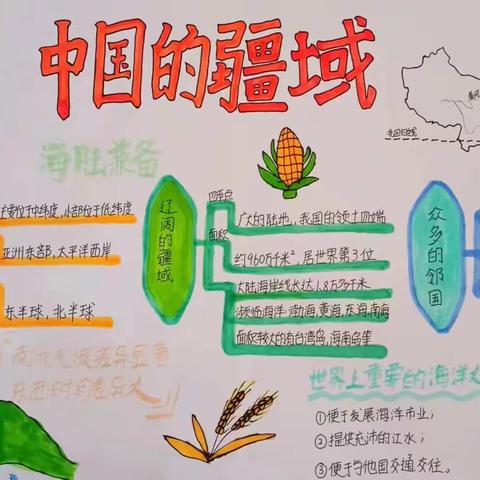 中国的疆域
海陆兼备
主要位于中纬度,小部位于低纬度
亚洲东部,太平洋西岸
东半球,北半球
南北气候差异显著
东西时间差异大
辽阔的疆域
四至点
广大的陆地,我国的领土四端
面积
约960万千米²,居世界第3位
大陆海岸线长达1.8万多千米
濒临海洋:渤海,黄海,东海,南海
面积较大的有台湾岛,海南岛等
众多的邻国
北回归线
世界上重要的海洋大
①便于发展海洋市业;
②提供充沛的江水;
③便于与他国交通交往。